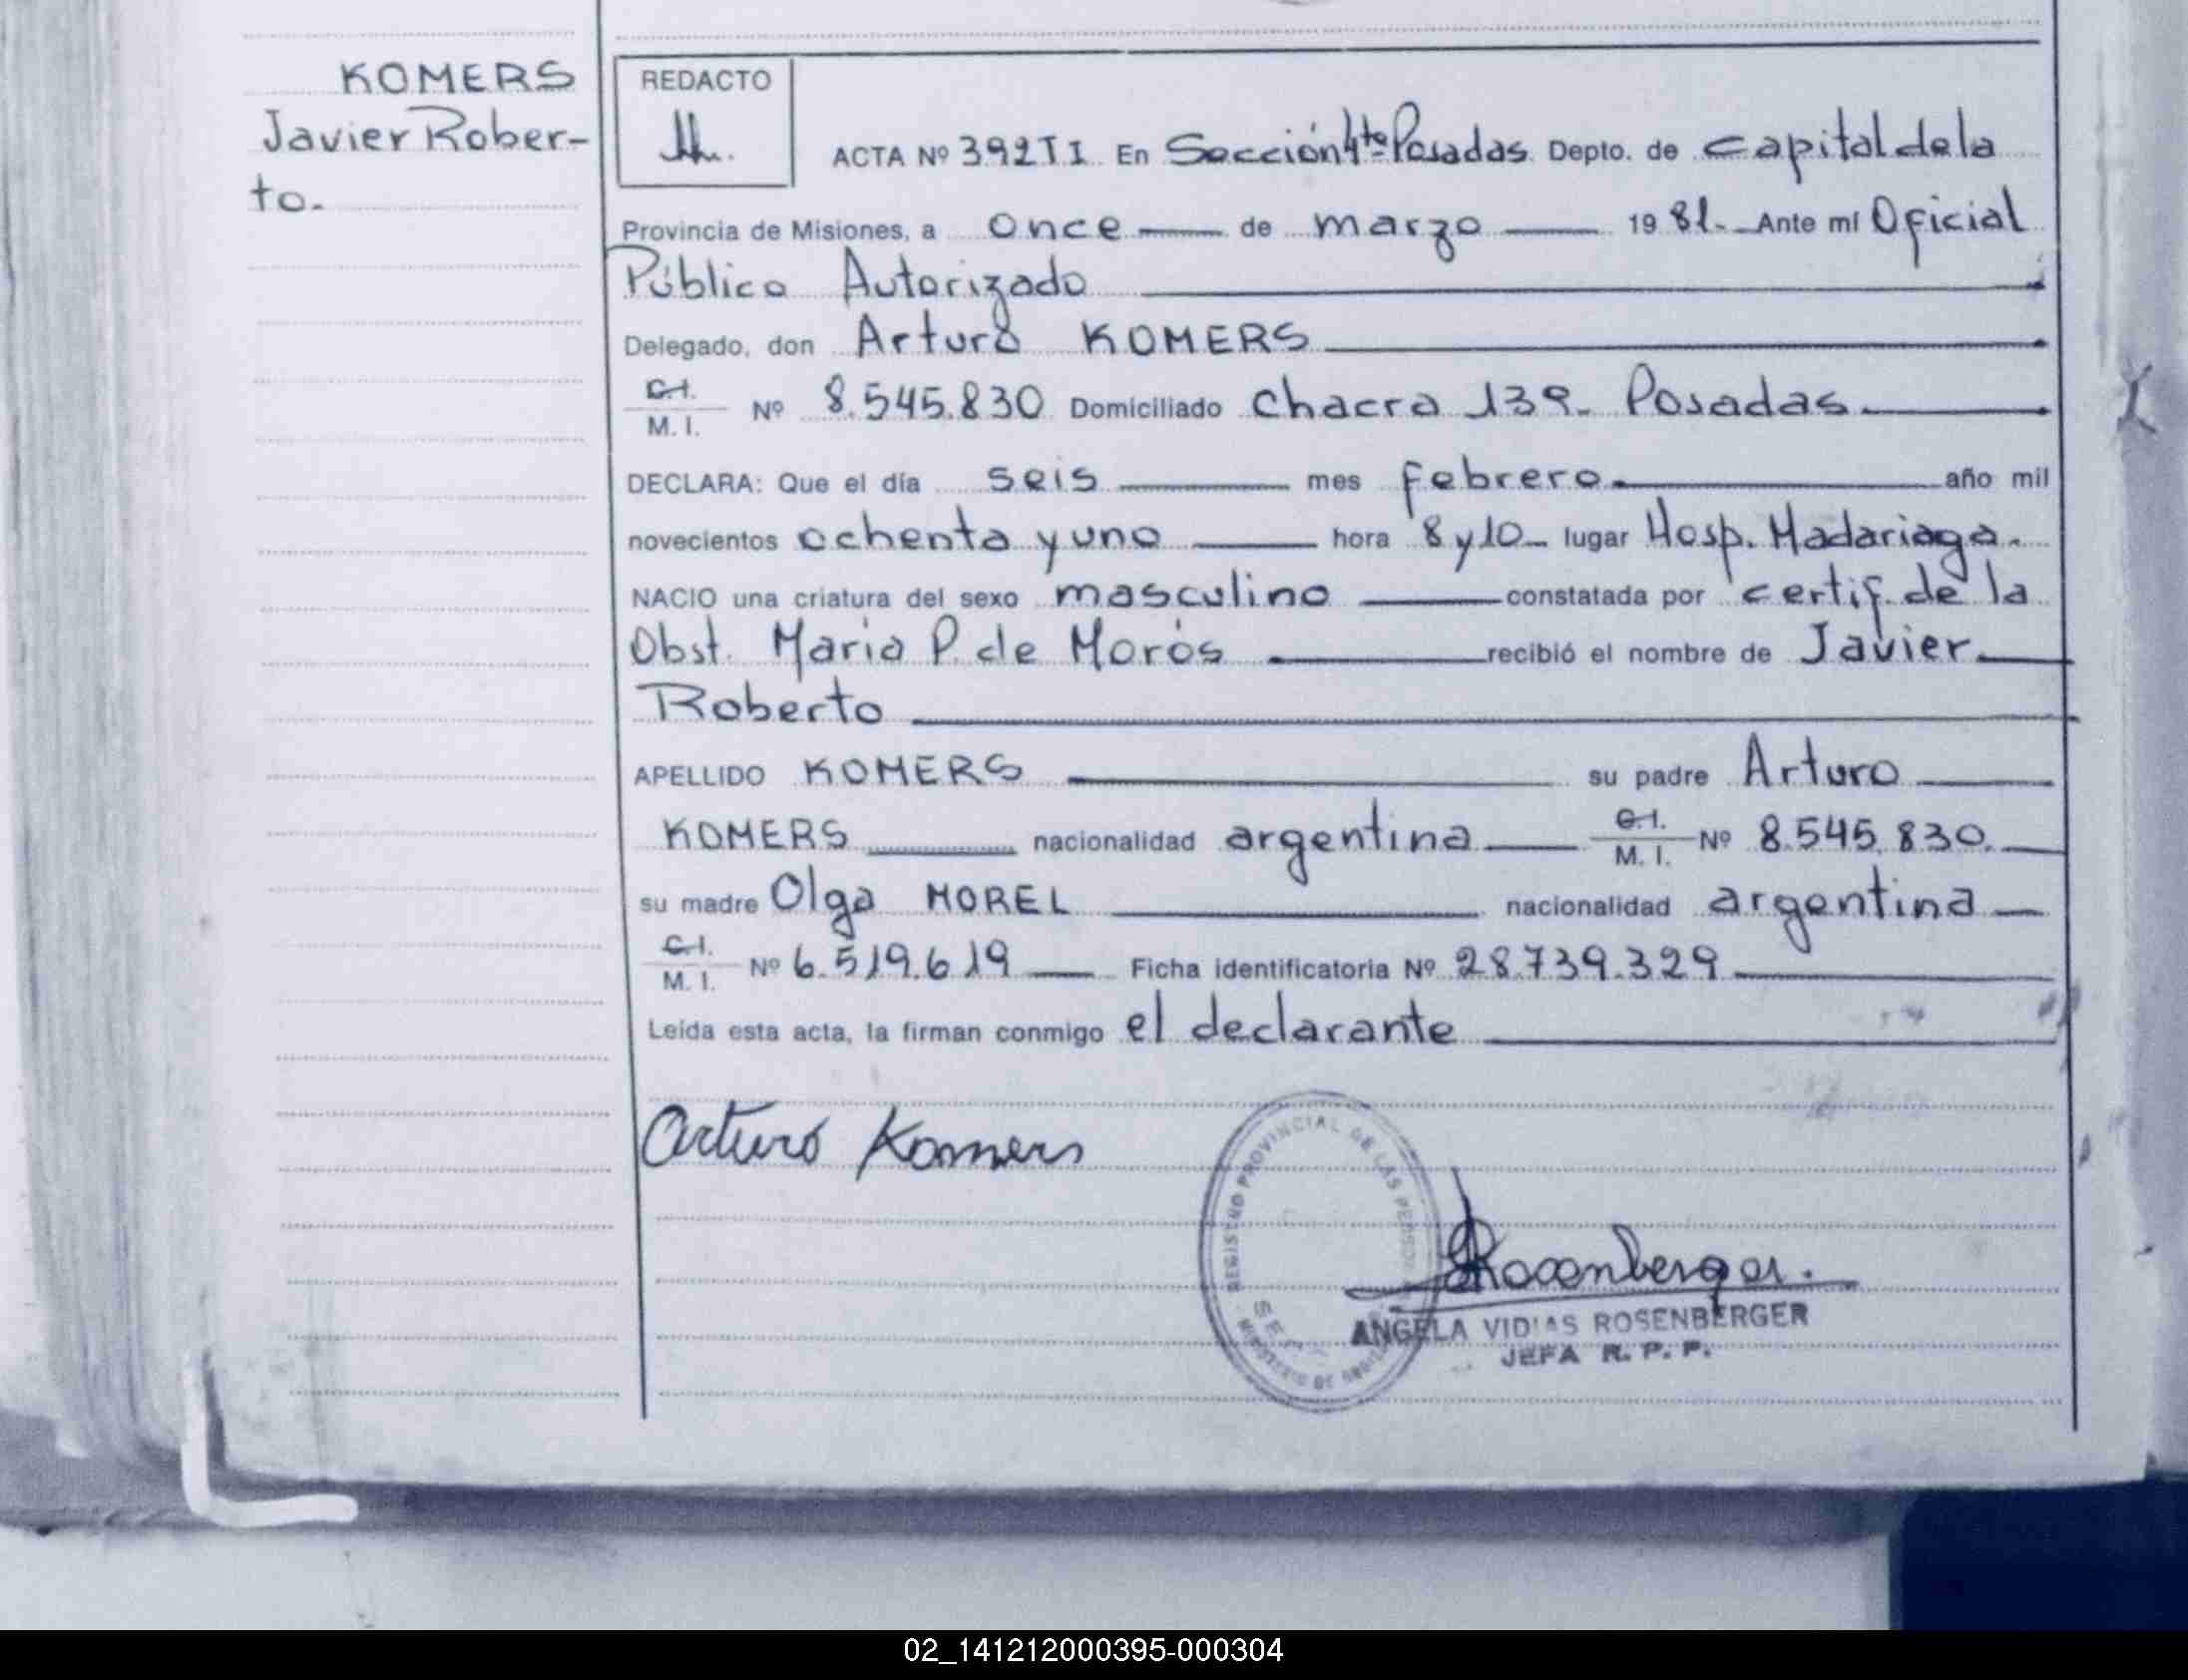 KOMERS
Javier Rober-
to.
REDACTO
ACTA Nº 392 T I En Sección 4ta Posadas Depto. de Capital de la
Provincia de Misiones, a once de marzo 1981. Ante mí Oficial
Público Autorizado
Delegado, don Arturo KOMERS
C.I.
M. I. Nº 8.545.830 Domiciliado Chacra 139. Posadas.
DECLARA: Que el día seis mes febrero. año mil
novecientos ochenta y uno hora 8 y 10 lugar Hosp. Madariaga.
NACIO una criatura del sexo masculino constatada por certif. de la
Obst. Maria P. de Morós recibió el nombre de Javier
Roberto
APELLIDO KOMERS su padre Arturo
KOMERS nacionalidad argentina C.I.
M. I. Nº 8.545.830.
su madre Olga MOREL nacionalidad argentina
C.I.
M. I. Nº 6.519.619 Ficha identificatoria Nº 28.739.329
Leída esta acta, la firman conmigo el declarante
Arturo Komers
REGISTRO PROVINCIAL DE LAS PERSONAS
MINISTERIO DE
Rosenberger.
ANGELA VIDIAS ROSENBERGER
JEFA R. P. P.
02_141212000395-000304